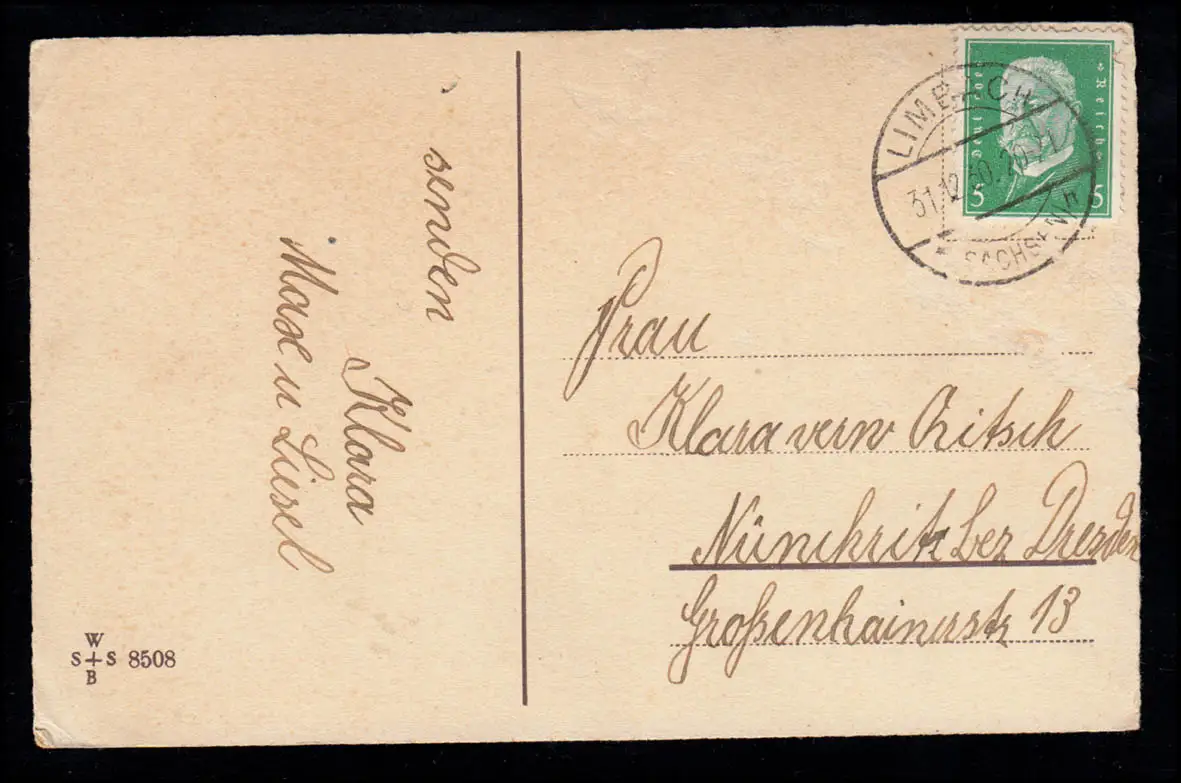 senden
Klara
Max u Liesel
W
S+S 8508
B
Deutsches Reich
5 5
LIMBACH
31.12.30.
SACHSEN
Frau
Klara verw Ritsch
Nünchritz bez Dresden
Großenhainerstr 13